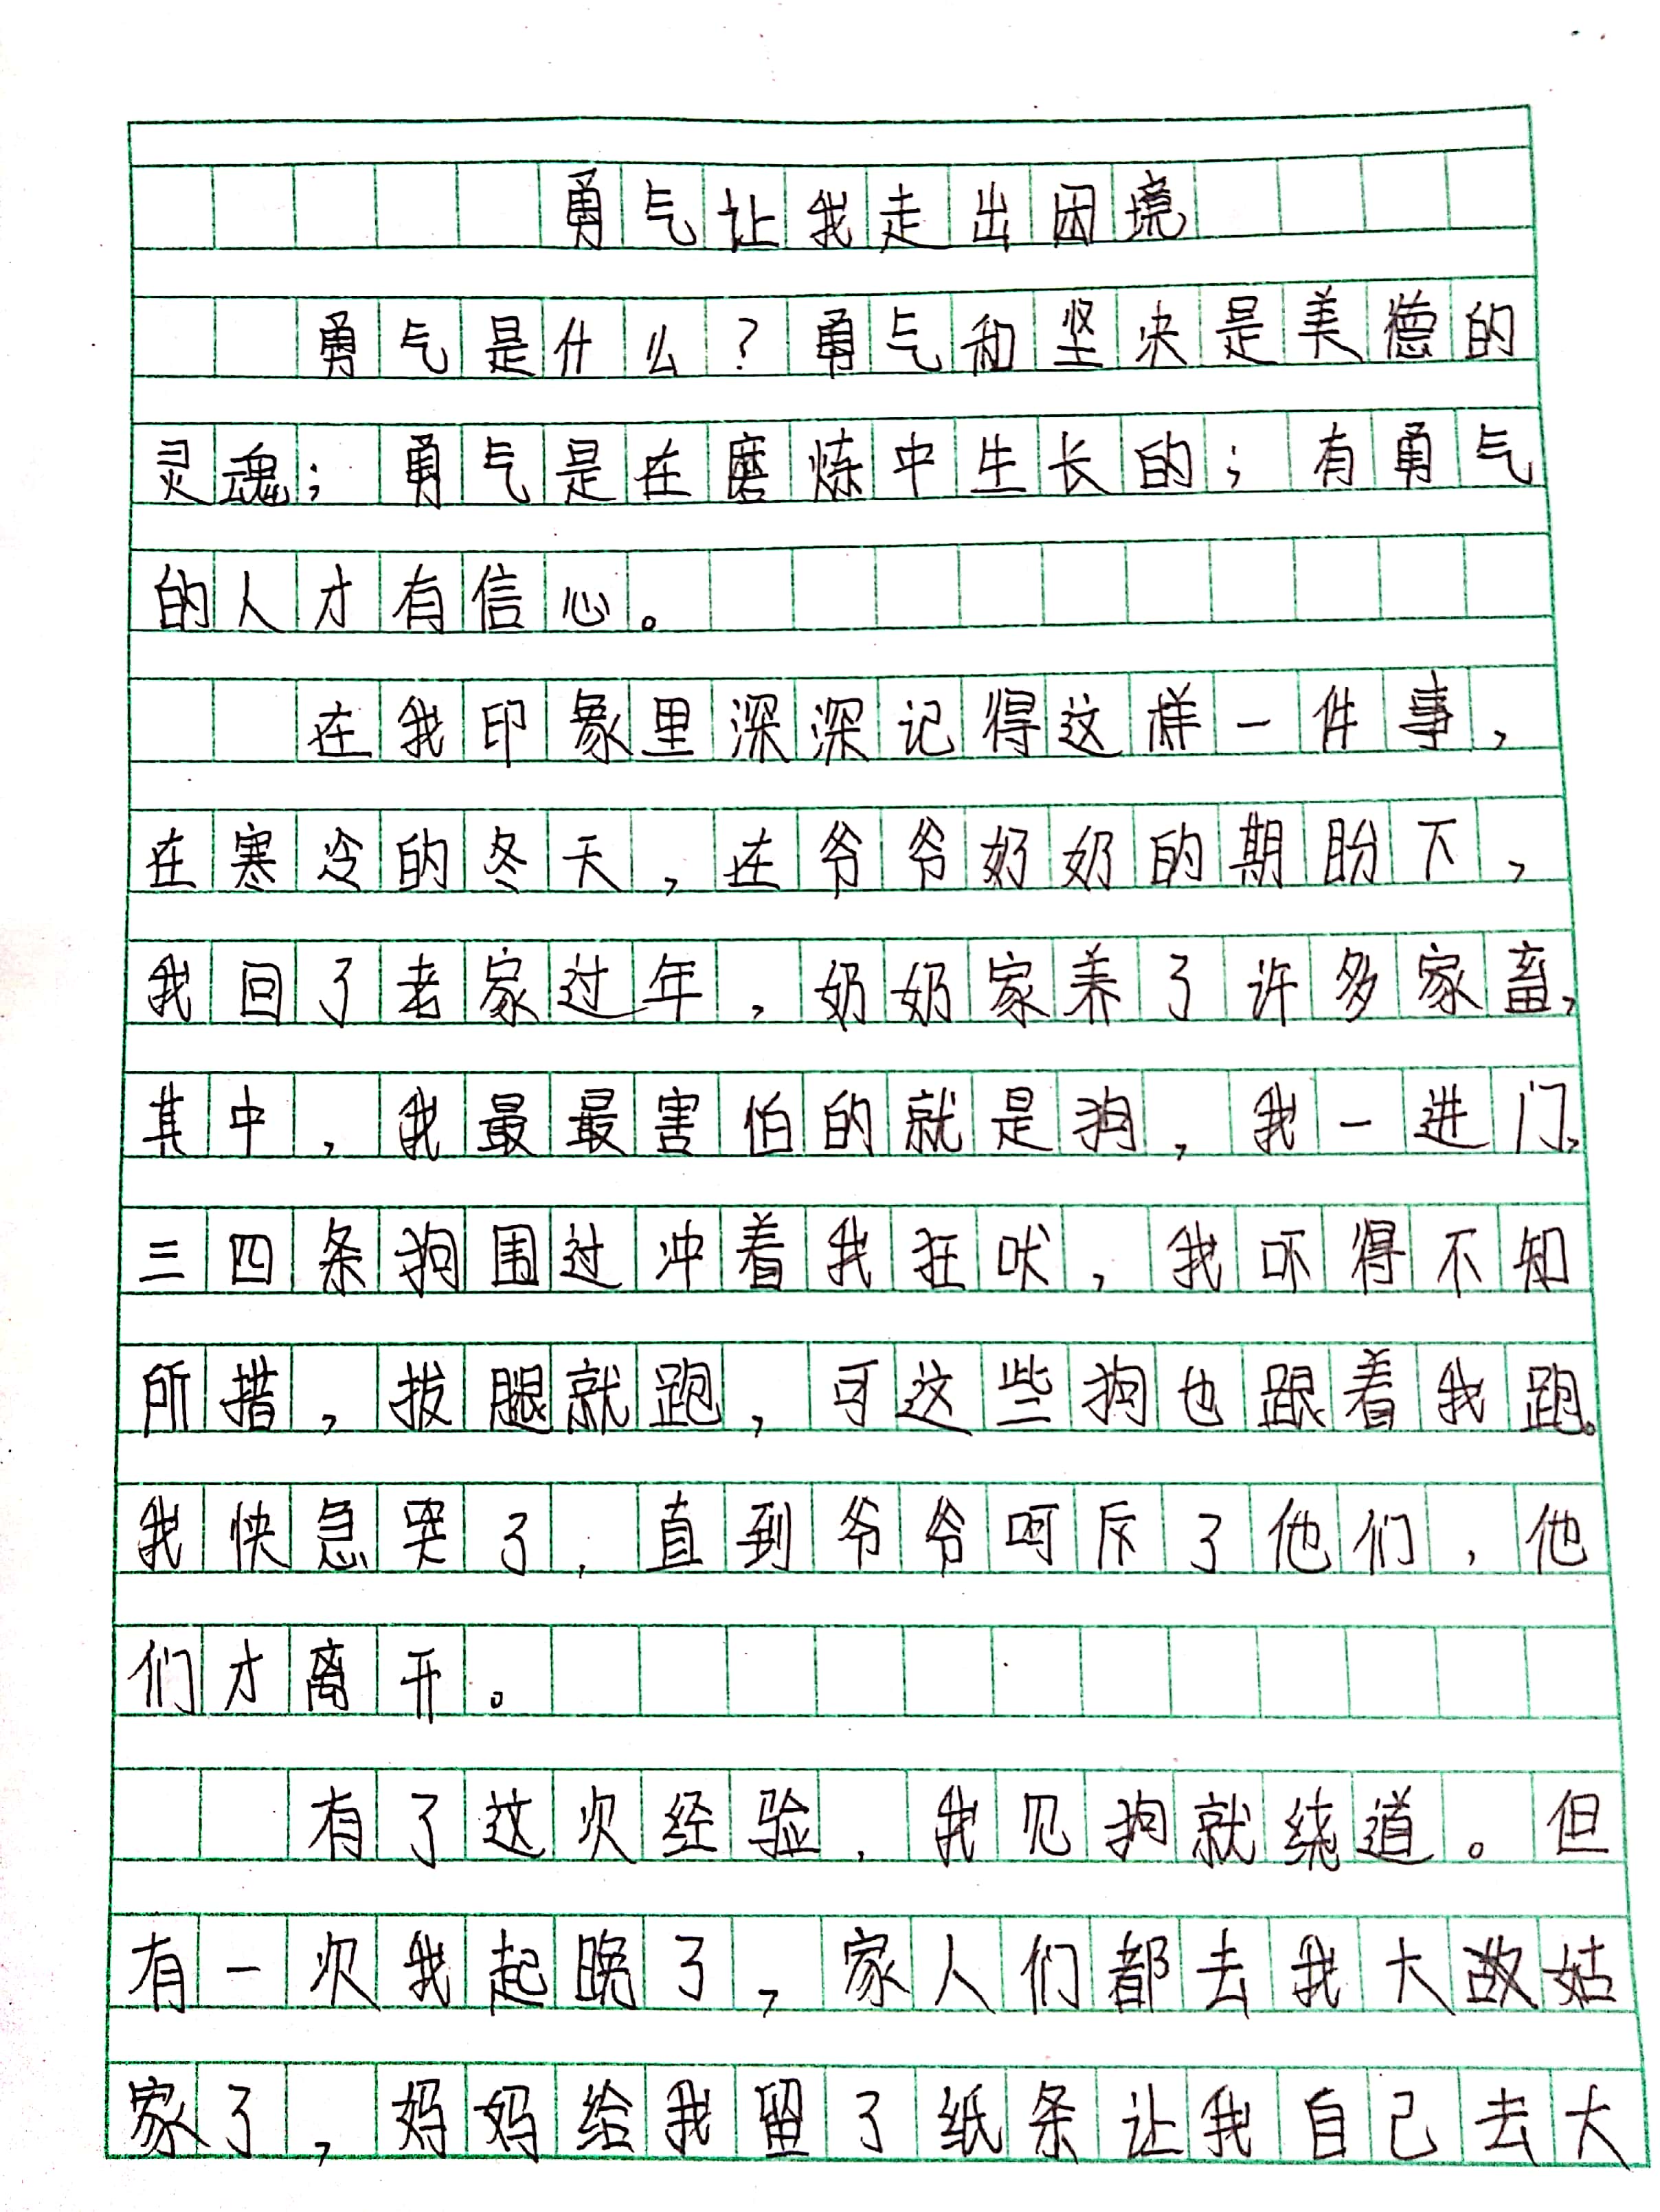 勇气让我走出困境
勇气是什么?勇气和坚决是美德的
灵魂;勇气是在磨炼中生长的;有勇气
的人才有信心。
在我印象里深深记得这样一件事,
在寒冷的冬天,在爷爷奶奶的期盼下,
我回了老家过年,奶奶家养了许多家畜,
其中,我最最害怕的就是狗,我一进门,
三四条狗围过冲着我狂吠,我吓得不知
所措,拔腿就跑,可这些狗也跟着我跑。
我快急哭了,直到爷爷呵斥了他们,他
们才离开。
有了这次经验,我见狗就绕道。但
有一次我起晚了,家人们都去我大姑
家了,妈妈给我留了纸条让我自己去大